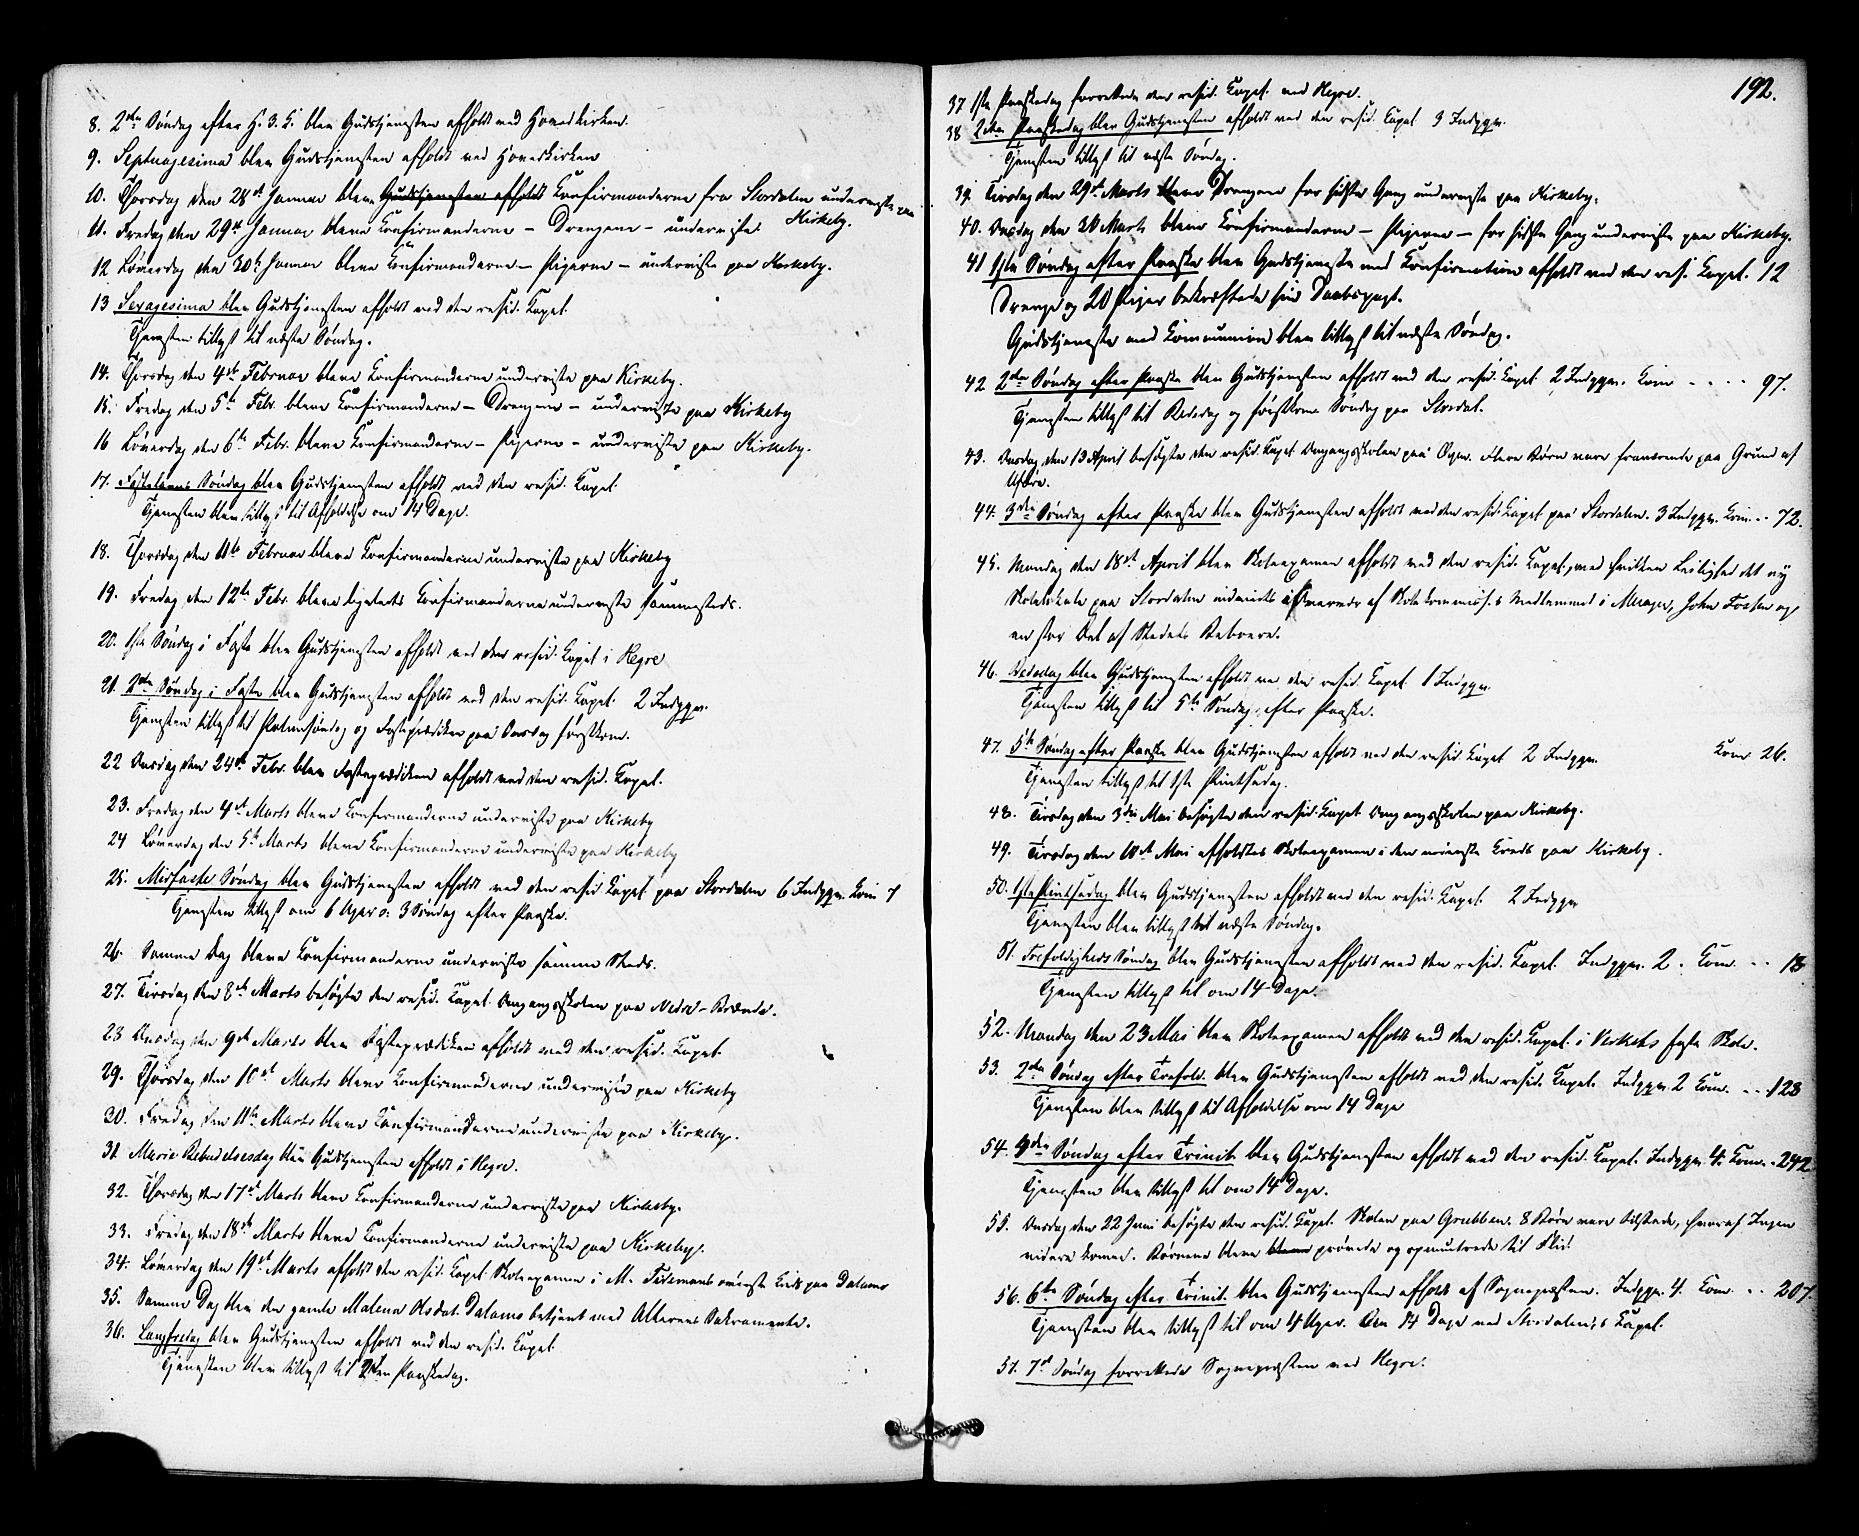 8. 2den Søndag efter H. 3. K. blev Gudstjenesten afholdt ved Hovedkirken.
9. Septuagesima blev Gudstjenesten afholdt ved Hovedkirken
10. Thorsdag den 28de Januar bleve Gudstjenesten afholdt Konfirmanderne fra Skordalen underviste paa
Kirkeby.
11. Fredag den 29de Januar bleve Konfirmanderne – Drengene – underviste
12 Löverdag den 30te Januar bleve Konfirmanderne – Pigerne – underviste paa Kirkeby.
13 Sexagesima blev Gudstjenesten afholdt ved den resid. Kapel.
Tjenesten tillyst til næste Söndag.
14. Thorsdag den 4de Februar bleve Konfirmanderne underviste paa Kirkeby.
15. Fredag den 5te Febr. bleve Konfirmanderne – Drengene – underviste paa Kirkeby
16 Löverdag den 6te Febr. bleve Konfirmanderne – Pigerne – underviste paa Kirkeby.
17. Fastelavns Söndag blev Gudstjenesten afholdt ved den resid. Kapel.
Tjenesten blev tillyst til Afholdelse om 14 Dage.
18. Thorsdag den 11te Februar bleve Konfirmanderne underviste paa Kirkeby
19. Fredag den 12te Febr. bleve ligeledes Konfirmanderne underviste sammesteds.
20. 1ste Söndag i Faste blev Gudstjenesten afholdt ved den resid. Kapel i Hegre
21. 2den Söndag i Faste blev Gudstjenesten afholdt ved den resid. Kapel. 2 Indggn.
Tjenesten tillyst til Palmesöndag og Fasteprædiken paa Onsdag förstkom.
22 Onsdag den 24de Febr. blev Fasteprædiken afholdt ved den resid. Kapel.
23. Fredag den 4de Marts bleve Konfirmanderne underviste paa Kirkeby
24 Löverdag den 5te Marts bleve Konfirmanderne underviste paa Kirkeby
25. Midfaste Söndag blev Gudstjenesten afholdt ved den resid Kapel. paa Skordalen 6 Indggn. Kom 7
Tjenesten tillyst om 6 Uger o: 3 Söndag efter Paaske.
26. Samme Dag bleve Konfirmanderne underviste samme Steds.
27. Tirsdag den 8de Marts besögte den resid. Kapel. Omgangsskolen paa Nedre-
28 Onsdag den 9de Marts blev Fasteprædiken afholdt ved den resid. Kapel.
29. Thorsdag den 10de Marts bleve Konfirmanderne underviste paa Kirkeby
30. Fredag den 11te Marts bleve Konfirmanderne underviste paa Kirkeby.
31 Mariæ Bebudelsesdag blev Gudstjenesten afholdt i Hegre.
32. Thorsdag den 17de Marts bleve Konfirmanderne underviste paa Kirkeby.
33. Fredag den 18de Marts bleve Konfirmanderne underviste paa Kirkeby.
34. Löverdag den 19de Marts afholdt den resid. Kapel Skoleexamen i M. Tidemans överste Kreds paa Dalamo
35. Samme Dag blev den gamle Malena Olsdat. Dalamo betjent med Alterens Sakramente.
36. Langfredag blev Gudstjenesten afholdt ved den resid. Kapel.
Tjenesten blev tillyst til 2den Paaskedag.
192.
37 1ste Paaskedag forrettede den resid. Kapel. ved Hegre.
38 2den Paaskedag blev Gudstjenesten afholdt ved den resid. Kapel 3 Indggn.
Tjenesten tillyst til næste Söndag.
39. Tirsdag den 29de Marts bleve Drengene for sidste Gang underviste paa Kirkeby.
40. Onsdag den 30 Marts bleve Konfirmanderne – Pigerne – for sidste Gang underviste paa Kirkeby.
41 1ste Söndag efter Paaske blev Gudstjeneste med Konfirmation afholdt ved den resi. Kapel. 12
Drenge og 20 Piger bekræftede sin Daabspagt.
Gudstjeneste med Kommunion blev tillyst til næste Söndag.
42 2den Söndag efter Paaske blev Gudstjenesten afholdt ved den resid. Kapel 2 Indggn. Kom - - - - 97.
Tjenesten tillyst til Bededag og förstkom Söndag paa Skordal.
43. Onsdag den 13 April besögte den resid. Kapel Omgangsskolen paa . Flere Börn vare fraværende paa Grund af
44. 3die Söndag efter Paaske blev Gudstjenesten afholdt ved den resid. Kapel paa Skordalen. 3 Indggn. Kom. - - 72.
45. Mandag den 18de April blev Skoleexamen afholdt ved den resid. Kapel., ved hvilken Leilighed det ny
Skolelokale paa Skordalen indviedes i Nærvær af Skolekommiss.s Medlemmer i Meraker, John Fossen og
en stor Del af Stedets Beboere.
46. Bededag blev Gudstjenesten afholdt ved den resid. Kapel 1 Indggn.
Tjenesten tillyst til 5te Söndag efter Paaske.
47. 5te Söndag efter Paaske blev Gudstjenesten afholdt ved den resid. Kapel 2 Indggn. Kom 26.
Tjenesten tillyst til 1ste Pintsedag.
48. Tirsdag den 3die Mai besögte den resid. Kapel Omgangsskolen paa Kirkeby.
49. Tirsdag den 10de Mai afholdtes Skoleexamen i den nederste Kreds paa Kirkeby.
50. 1ste Pintsedag blev Gudstjenesten afholdt ved den resid. Kapel. 2 Indggn
Tjenesten blev tillyst til næste Söndag.
51. Trefoldigheds Söndag blev Gudstjenesten afholdt ved den resid. Kapel. Indggn. 2. Kom. - - 18
Tjenesten tillyst til om 14 Dage.
52. Mandag den 23 Mai blev Skoleexamen afholdt ved den resid. Kapel. i Verkets faste Skole.
53. 2den Söndag efter Trefold. blev Gudstjenesten afholdt ved den resid. Kapel. Indggn. 2 Kom. - - 123
Tjenesten blev tillyst til Afholdelse om 14 Dage
54. 4de Söndag efter Trinit. blev Gudstjenesten afholdt ved den resid. Kapel. Indggn. 4. Kom. - 242
Tjenesten blev tillyst til om 14 Dage.
55. Onsdag den 22 Juni besögte den resid. Kapel. Skolen paa Grubben. 8 Börn vare tilstede, hvoraf Ingen
videre komne. Börnene bleve bleve prövede og opmuntrede til Flid.
56. 6te Söndag efter Trinit. blev Gudstjenesten afholdt af Sognepresten. Indggn. 4. Kom. - - 207.
Tjenesten blev tillyst til om 4 Uger. Om 14 Dage ved Skordalens Kapel.
57. 7de Söndag forrettede Sognepresten ved Hegre.